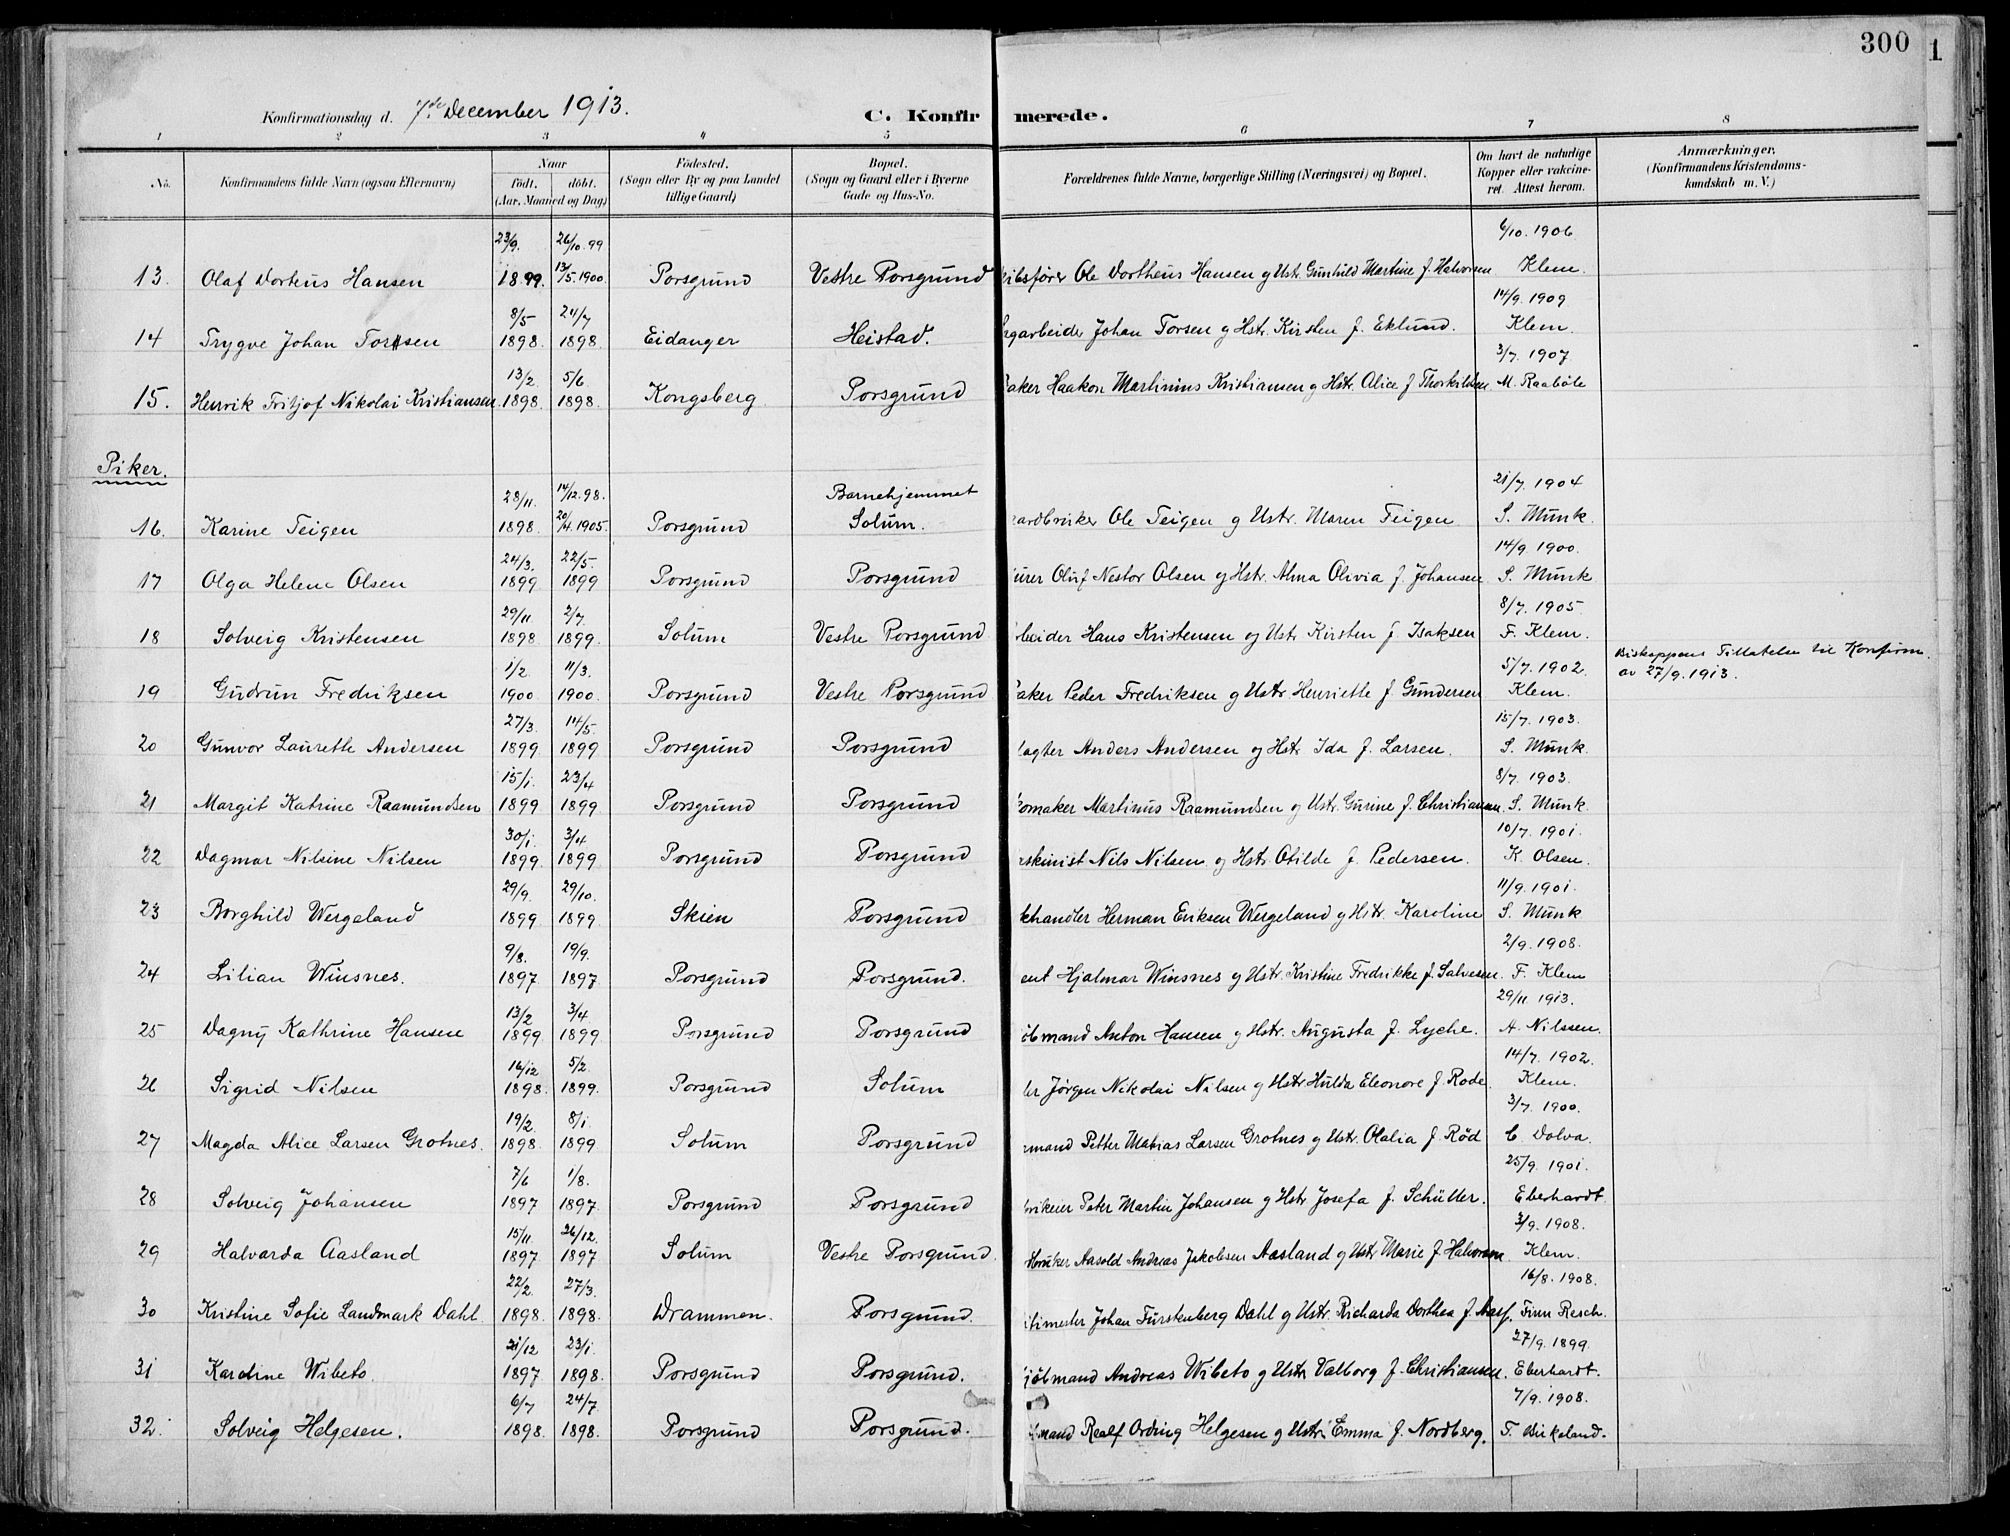 300
1
Konfirmationsdag d. 7de December 1913.
C. Konfirmerede.
1 2 3 4 5 6 7 8
No.
Konfirmandens fulde Navn (ogsaa Efternavn)
Naar
født. døbt.
(Aar, Maaned og Dag)
Fødested.
(Sogn eller By og paa Landet
tillige Gaard)
Bopæl.
(Sogn og Gaard eller i Byerne
Gade og Hus-No.
Forældrenes fulde Navne, borgerlige Stilling (Næringsvei) og Bopæl.
Om havt de naturlige
Kopper eller vakcine-
ret. Attest herom.
Anmærkninger.
(Konfirmandens Kristendoms-
kundskab m. V.)
23/9. 26/10.99 6/10.1906
13. Olaf Dorteus Hansen 1899. 13/5.1900. Porsgrund Vestre Porsgrund Ole Dortheus Hansen og Ustr. Gunhild Martine f. Halvorsen Klem.
8/5 24/7 14/9.1909
14 Trygve Johan Torsen 1898. 1898. Eidanger Heistad. Johan Torsen og Hstr. Kirsten f. Eklund. Klem.
13/2. 5/6. 3/7.1907
15. Henrik Fritjof Nikolai Kristiansen 1898. 1898. Kongsberg Porsgrund Haakon Martinius Kristiansen og Hstr. Alice f. Thorkildsen M. Raabøle
Piker.
28/11. 14/12.98. Barnehjemmet 21/7.1904
16. Karine Teigen 1898. 20/4.1905. Porsgrund Solum. Ole Teigen og Ustr. Maren Teigen S. Munk.
24/3. 22/5. 14/9.1900.
17 Olga Helene Olsen 1899 1899 Porsgrund Porsgrund Oluf Nestor Olsen og Hstr. Alma Olivia f. Johansen S. Munk
29/11. 2/7. 8/7.1905.
18 Solveig Kristensen 1898 1899. Solum Vestre Porsgrund Hans Kristensen og Ustr. Kirsten f. Isaksen F. Klem.
1/2. 11/3. 5/7.1902. Biskoppens Tillatelse til Konfirm.
19 Gudrun Fredriksen 1900 1900. Porsgrund Vestre Porsgrund Peder Fredriksen og Ustr. Henriette f. Gundersen Klem. av 27/9.1913.
27/3. 14/5. 15/7.1903.
20 Gunvor Laurette Andersen 1899 1899 Porsgrund Porsgrund Anders Andersen og Hstr. Ida f. Larsen. S. Munk.
15/1. 23/4 8/7.1903.
21 Margit Katrine Raamundsen 1899 1899 Porsgrund Porsgrund Martinus Raamundsen og Ustr. Gurine f. Christiansen. S. Munk.
30/1. 3/4 10/7.1901.
22 Dagmar Nilsine Nilsen 1899. 1899. Porsgrund Porsgrund Nils Nilsen og Hstr. Otilde f. Pedersen. K. Olsen.
29/9. 29/10. 11/9.1901.
23 Borghild Wergeland 1899 1899 Skien Porsgrund Herman Eriksen Wergeland og Hstr. Karoline S. Munk
9/8. 19/9. 2/9.1908.
24 Lilian Winsnes. 1897 1897 Porsgrund Porsgrund. Hjalmar Winsnes og Ustr. Kristine Fredrikke f. Salvesen. F. Klem
13/2 3/4 29/11 1913.
25 Dagny Kathrine Hansen 1899 1899. Porsgrund Porsgrund Anton Hansen og Hstr. Augusta f. Lyche. A. Nilssen.
16/12 5/2. 14/7.1902.
26 Sigrid Nilsen 1898. 1899. Porsgrund Solum Jørgen Nikolai Nilsen og Hstr. Hulda Eleonore f. Rode. Klem.
19/2. 8/1. 3/7.1900.
27 Magda Alice Larsen Grotnes. 1898. 1899 Solum Porsgrund Petter Mathias Larsen Grotnes og Ustr. Olalia f. Rød C. Dolva.
7/6 1/8. 25/9.1901.
28 Solveig Johansen 1897 1897. Porsgrund Porsgrund Peter Martin Johansen og Hstr. Josefa f. Schüller. Eberhardt.
15/11. 26/12. 3/9.1908.
29 Halvarda Aasland 1897 1897 Solum Vestre Porsgrund. Aasold Andreas Jakobsen Aasland og Ustr. Marie f. Halvorsen. Klem.
22/2. 27/3. 16/8.1908.
30 Kristine Sofie Landmark Dahl. 1898. 1898. Drammen. Porsgrund. Johan Fürstenberg Dahl og Ustr. Richarda Dorthea f. Aas. Finn Resch.
21/12 23/1. 27/9.1899.
31 Karoline Wibeto. 1897 1898. Porsgrund Porsgrund. Andreas Wibeto og Ustr. Valborg f. Christiansen. Eberhardt.
6/7 24/7. 7/9.1908.
32. Solveig Helgesen. 1898. 1898. Porsgrund Porsgrund. Realf Ording Helgesen og Ustr. Emma f. Nordberg. T. Birkeland.